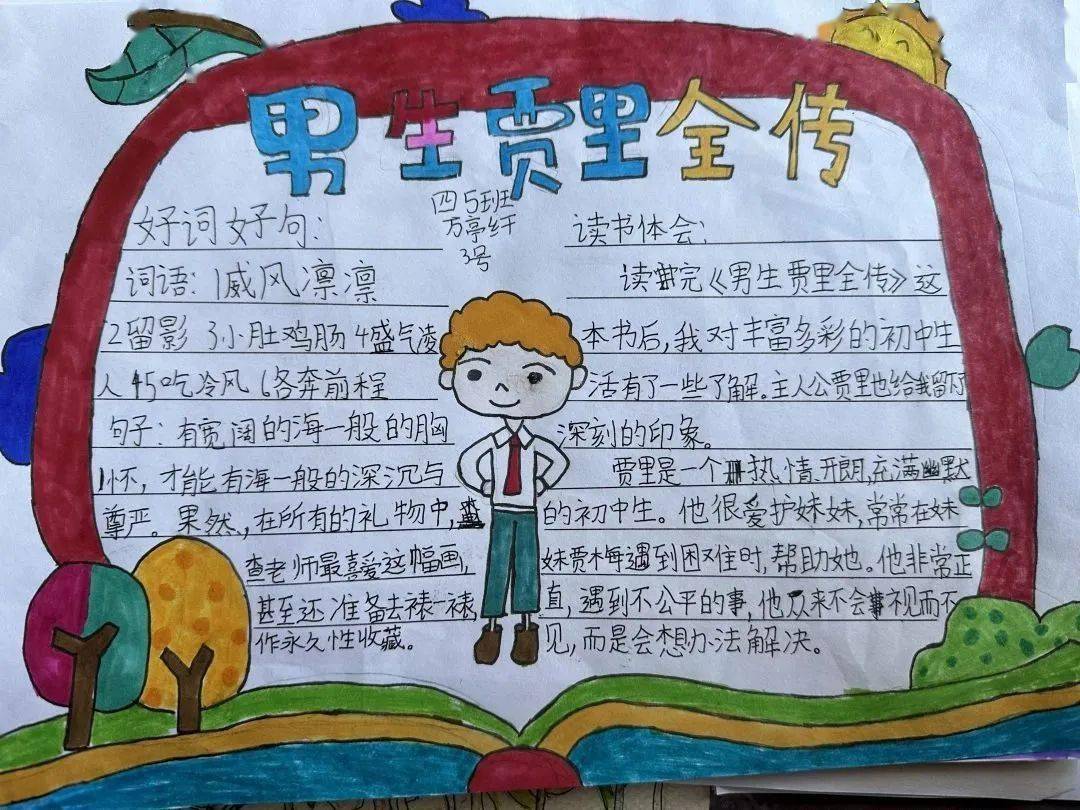 男生贾里全传
四5班
万亭纤
3号
好词好句:
词语: 1威风凛凛
2留影 3小肚鸡肠 4盛气凌
人 5吃冷风 6各奔前程
句子: 有宽阔的海一般的胸
怀, 才能有海一般的深沉与
尊严。果然, 在所有的礼物中,
查老师最喜爱这幅画,
甚至还准备去裱一裱,
作永久性收藏。
读书体会:
读完《男生贾里全传》这
本书后, 我对丰富多彩的初中生
活有了一些了解。主人公贾里也给我留下了
深刻的印象。
贾里是一个热情开朗, 充满幽默
的初中生。他很爱护妹妹, 常常在妹
妹贾梅遇到困难时, 帮助她。他非常正
直, 遇到不公平的事, 他从来不会视而不
见, 而是会想办法解决。